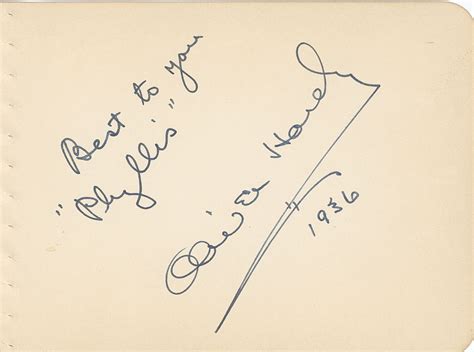 Best to you
"Phyllis"
Oliver Hardy
1936